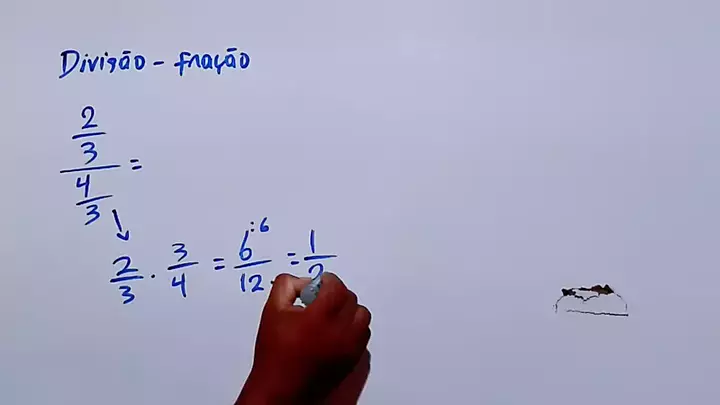 Divisão - fração
2
3
=
4
3
2/3 · 3/4 = 6/12 = 1/2
:6